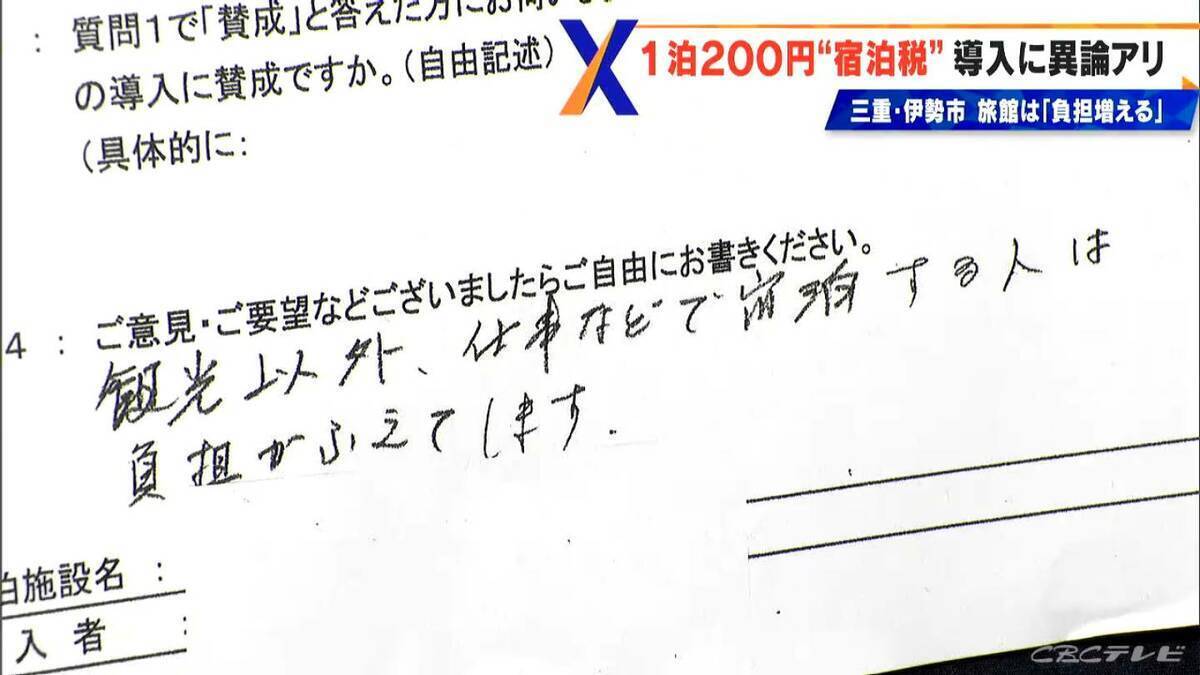 : 質問1で「賛成」と答えた方にお伺いし
の導入に賛成ですか。(自由記述)
(具体的に:
1泊200円“宿泊税”導入に異論アリ
三重・伊勢市 旅館は「負担増える」
4 : ご意見・ご要望などございましたらご自由にお書きください。
観光以外、仕事などで宿泊する人は
負担がふえてします.
泊施設名 :
入者 :
CBCテレビ